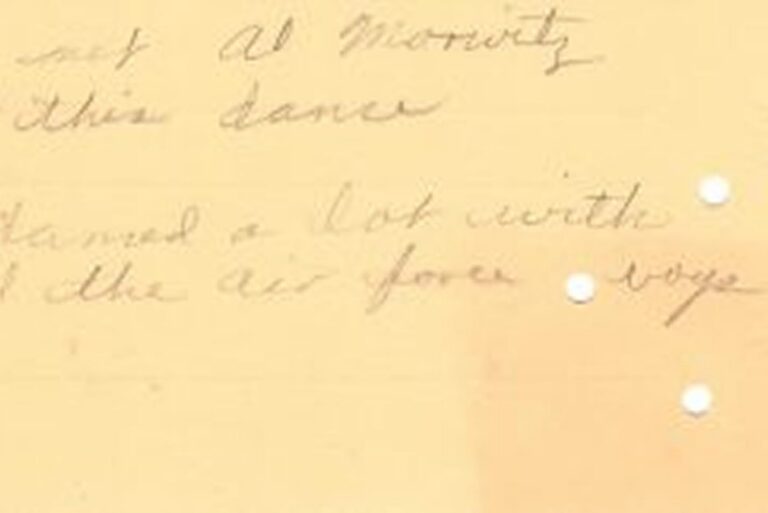 met Al Morwitz
this dance
danced a lot with
the air force boys